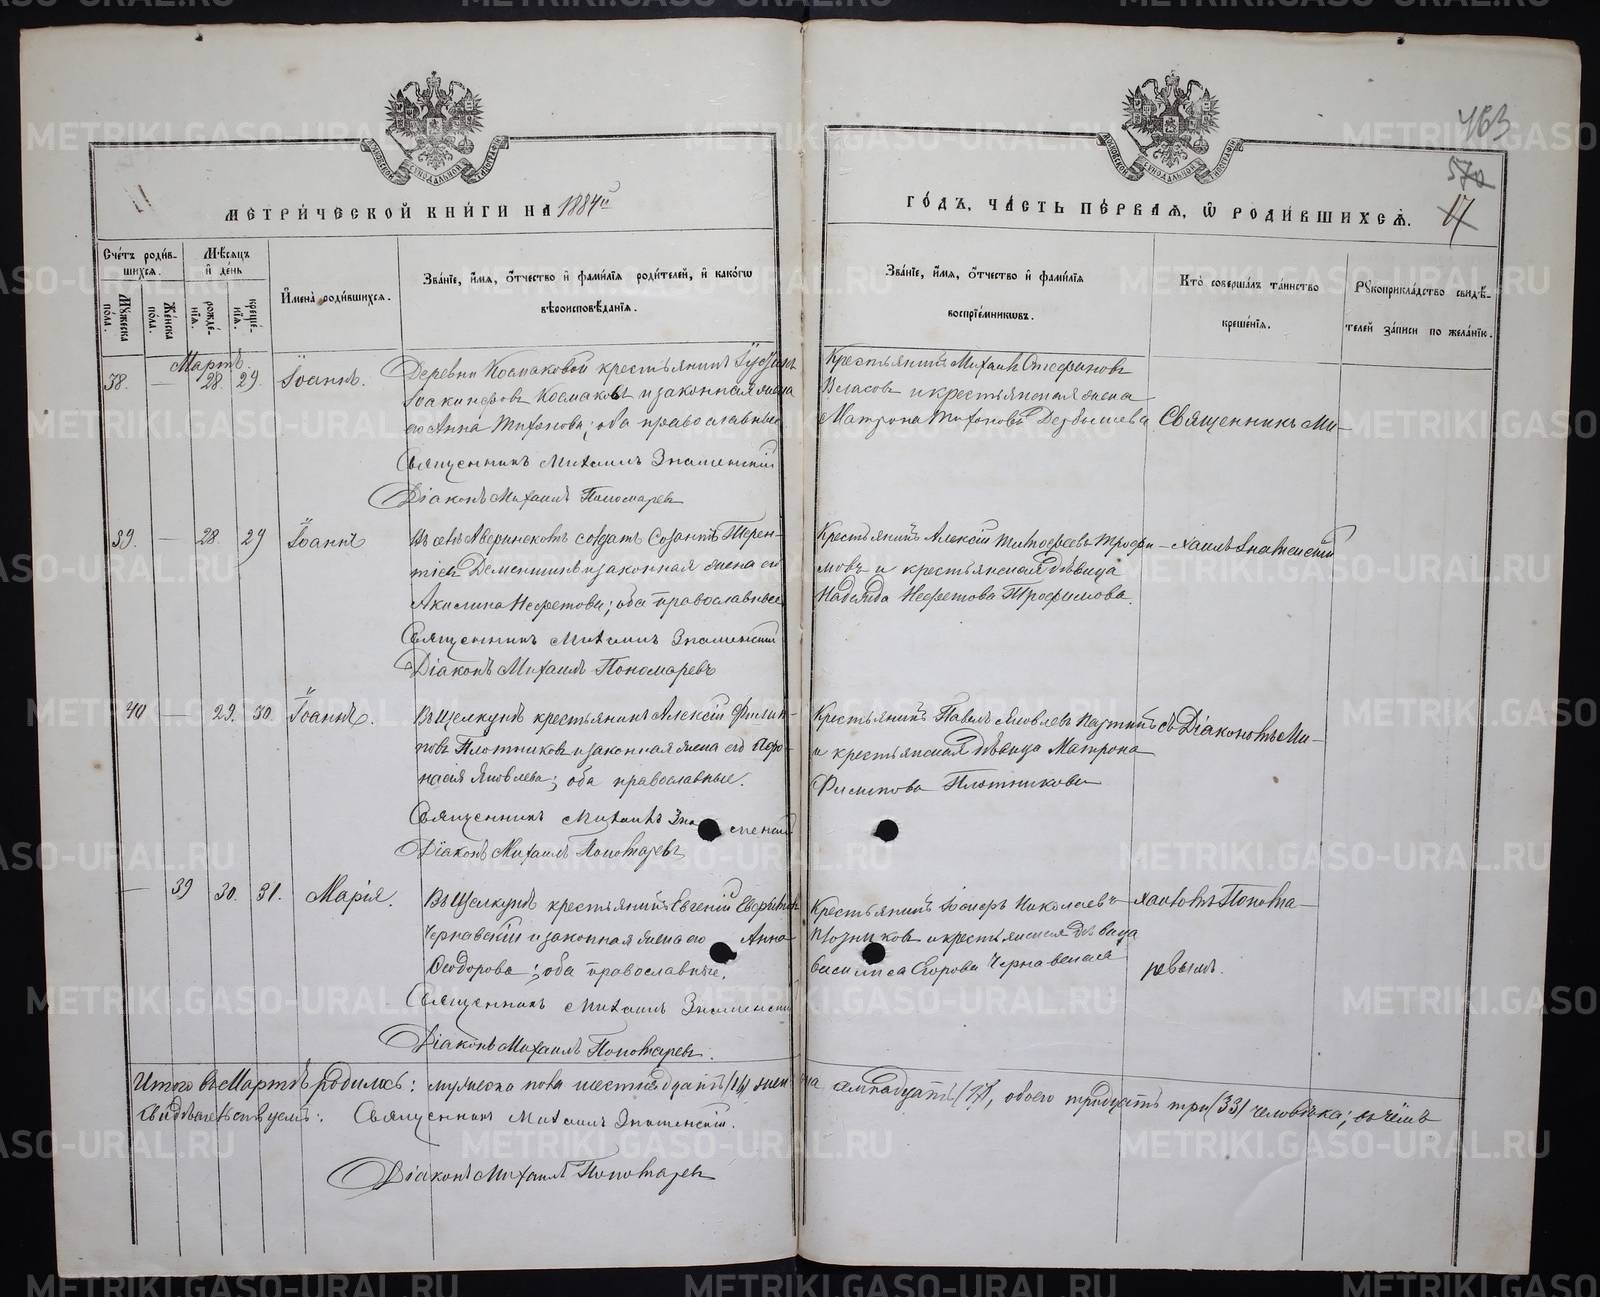 463
570
17
МЕТРИЧЕСКОЙ КНИГИ НА 1884й
ГОДЪ, ЧАСТЬ ПЕРВАЯ, Ѡ РОДИВШИХСЯ.
Счетъ родившихся.
Мужеска пола.
Женска пола.
Мѣсяцъ и день
рожденія.
крещенія.
Имена родившихся.
Званіе, имя, отчество и фамилія родителей, и какогѡ
вѣроисповѣданія.
Званіе, имя, отчество и фамилія
воспріемникѡвъ.
Кто совершалъ таинство
крещенія.
Рукоприкладство свидѣ-
телей записи по желанію.
Мартъ.
38. — 28. 29. Іоаннъ.
Деревни Космаковой крестьянинъ
Космаковъ и законная жена
его Анна Тихонова; оба православные.
Священникъ Михаилъ Знаменскій
Діаконъ Михаилъ Пономаревъ
Крестьянинъ Михаилъ Стефановъ
Власовъ и крестьянская жена
Матрона Тихонова
Священникъ Ми-
39. — 28. 29 Іоаннъ
солдатъ Созонтъ Терен-
тіевъ Дементинъ и законная жена его
Акилина; оба православные
Священникъ Михаилъ Знаменскій
Діаконъ Михаилъ Пономаревъ
Крестьянинъ Алексій Тимофеевъ Трофи-
мовъ и крестьянская дѣвица
Надежда Трофимова.
хаилъ Знаменскій
40 — 29. 30. Іоаннъ.
Въ Щелкунѣ крестьянинъ Алексій Филип-
повъ Плотниковъ и законная жена его Афо-
насія Яковлева; оба православные.
Священникъ Михаилъ Знаменскій
Діаконъ Михаилъ Пономаревъ
Крестьянинъ Павелъ Яковлевъ
и крестьянская дѣвица Матрона
Филипова Плотникова
съ Діакономъ Ми-
— 39 30. 31. Марія.
Въ Щелкунѣ крестьянинъ Евгеній
Чернавскій и законная жена его Анна
Ѳеодорова; оба православные.
Священникъ Михаилъ Знаменскій
Діаконъ Михаилъ Пономаревъ.
Крестьянинъ Николаевъ
и крестьянская дѣвица
Василиса Егорова Чернавская
хаиломъ Понома-
ревымъ.
Итого въ Мартѣ родилось: мужеска пола шестнадцать (16) женска семнадцать (17), обоего тридцать три (33) человѣка; въ чемъ
свидѣтельствуемъ: Священникъ Михаилъ Знаменскій.
Діаконъ Михаилъ Пономаревъ
METRIKI.GASO-URAL.RU